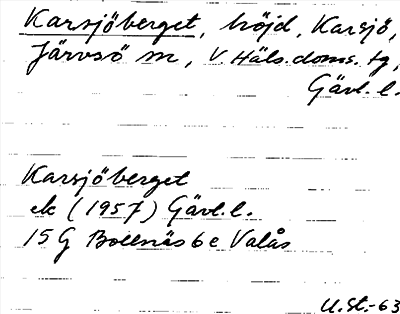 Karsjöberget, höjd, Karsjö,
Järvsö sn, V. Häls. doms. tg,
Gävl. l.
Karsjöberget
ek (1957) Gävl. l.
15 G Bollnäs 6 e Valås
U.St.-63